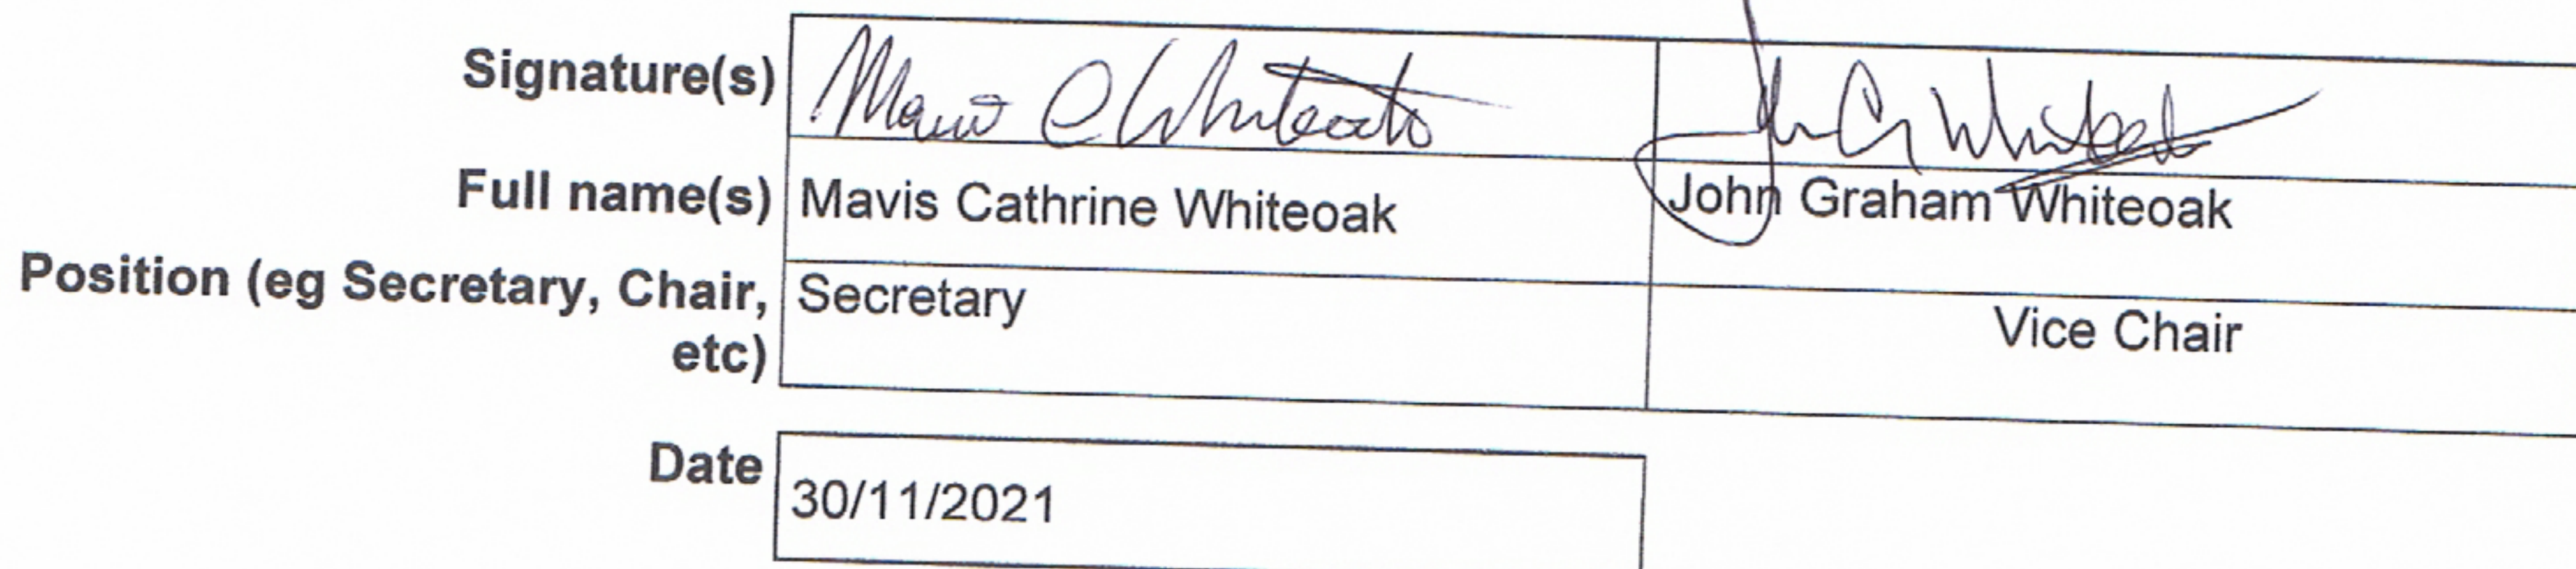 Signature(s) Mavis C Whiteoak John G Whiteoak
Full name(s) Mavis Cathrine Whiteoak John Graham Whiteoak
Position (eg Secretary, Chair, Secretary Vice Chair
etc)
Date 30/11/2021